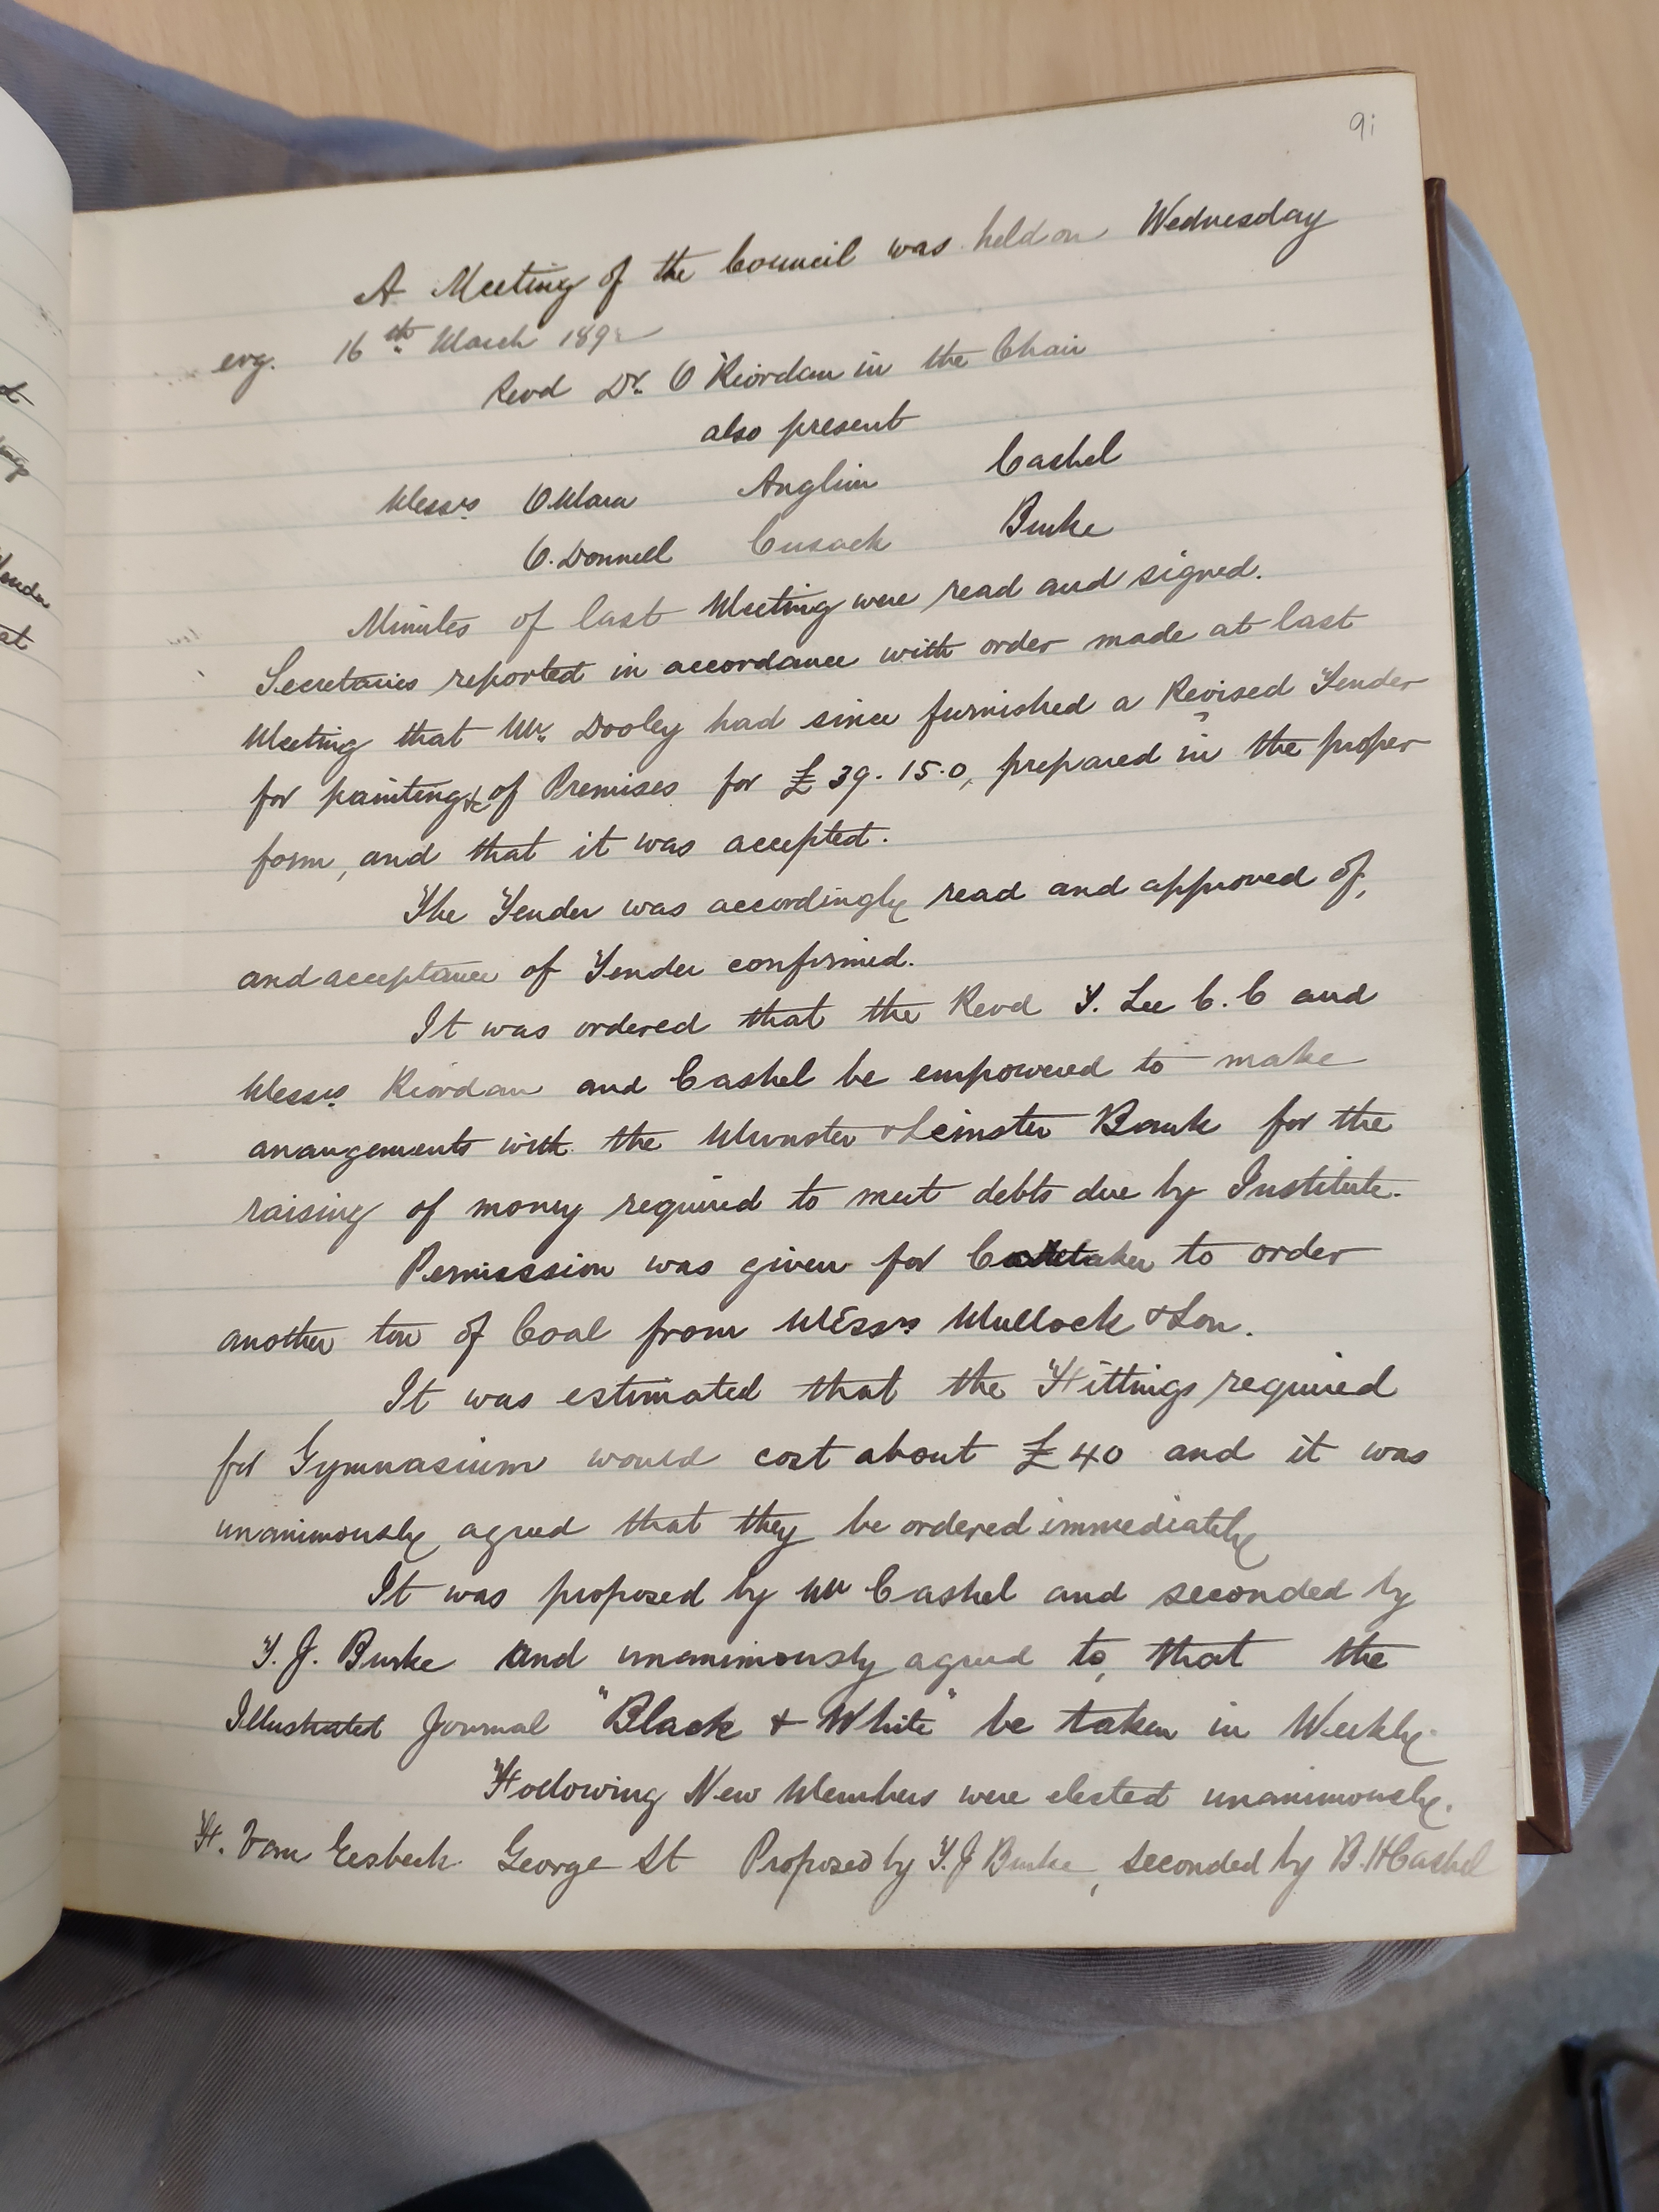 91
A Meeting of the Council was held on Wednesday
evg. 16th March 1892
Revd Dr. O'Riordan in the Chair
also present
Messrs O'Mara Anglim Cashel
O'Donnell Cusack Burke
Minutes of last Meeting were read and signed.
Secretaries reported in accordance with order made at last
Meeting that Mr. Dooley had since furnished a Revised Tender
for painting &c of Premises for £39.15.0, prepared in the proper
form, and that it was accepted.
The Tender was accordingly read and approved of,
and acceptance of Tender confirmed.
It was ordered that the Revd T. Lee C.C and
Messrs Riordan and Cashel be empowered to make
arangements with the Munster & Leinster Bank for the
raising of money required to meet debts due by Institute.
Permission was given for Caretaker to order
another ton of Coal from Messrs Mullock & Son.
It was estimated that the Fittings required
for Gymnasium would cost about £40 and it was
unanimously agreed that they be ordered immediately
It was proposed by Mr Cashel and seconded by
T. J. Burke and unanimously agreed to, that the
Illustrated Journal "Black & White" be taken in Weekly.
Following New Members were elected unanimously.
F. Van Eesbeck George St Proposed by T. J Burke, seconded by B. H Cashel